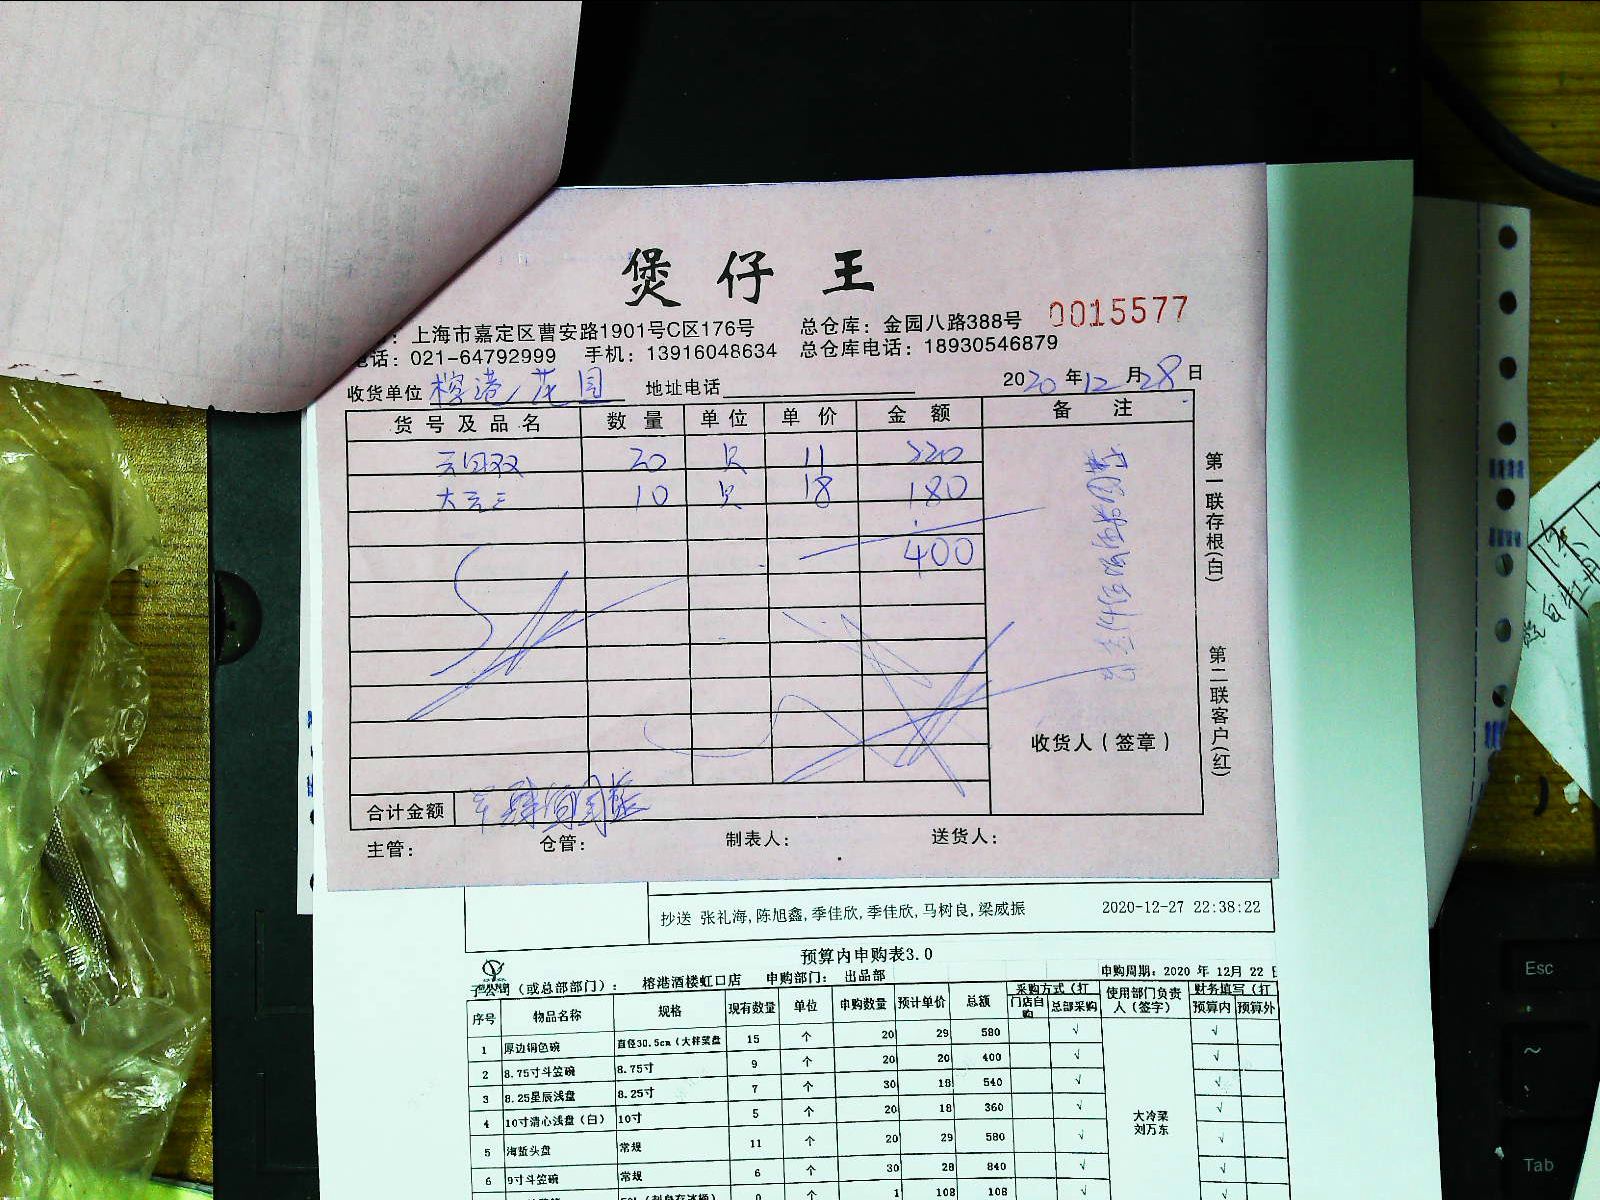 煲仔王
：上海市嘉定区曹安路1901号C区176号 总仓库：金园八路388号 0015577
电话：021-64792999 手机：13916048634 总仓库电话：18930546879
收货单位 榕港花园 地址电话 2020年12月28日
货号及品名 数量 单位 单价 金额 备注
20 只 11 220
10 只 18 180
400
第一联存根(白)
第二联客户(红)
收货人（签章）
合计金额
主管： 仓管： 制表人： 送货人：
抄送 张礼海,陈旭鑫,季佳欣,季佳欣,马树良,梁威振 2020-12-27 22:38:22
预算内申购表3.0
子公司（或总部部门）： 榕港酒楼虹口店 申购部门： 出品部 申购周期：2020 年 12月 22 日
序号 物品名称 规格 现有数量 单位 申购数量 预计单价 总额 采购方式（打 门店自购 总部采购 使用部门负责人（签字） 财务填写（打 预算内 预算外
1 厚边铜色碗 直径30.5cm（大拌菜盘 15 个 20 29 580 √ √
2 8.75寸斗笠碗 8.75寸 9 个 20 20 400 √ √
3 8.25星辰浅盘 8.25寸 7 个 30 18 540 √ √
4 10寸清心浅盘（白） 10寸 5 个 20 18 360 √ √
大冷菜
刘万东
5 海蜇头盘 常规 11 个 20 29 580 √ √
6 9寸斗笠碗 常规 6 个 30 28 840 √ √
0 个 1 108 108 √ √
Esc
~
Tab